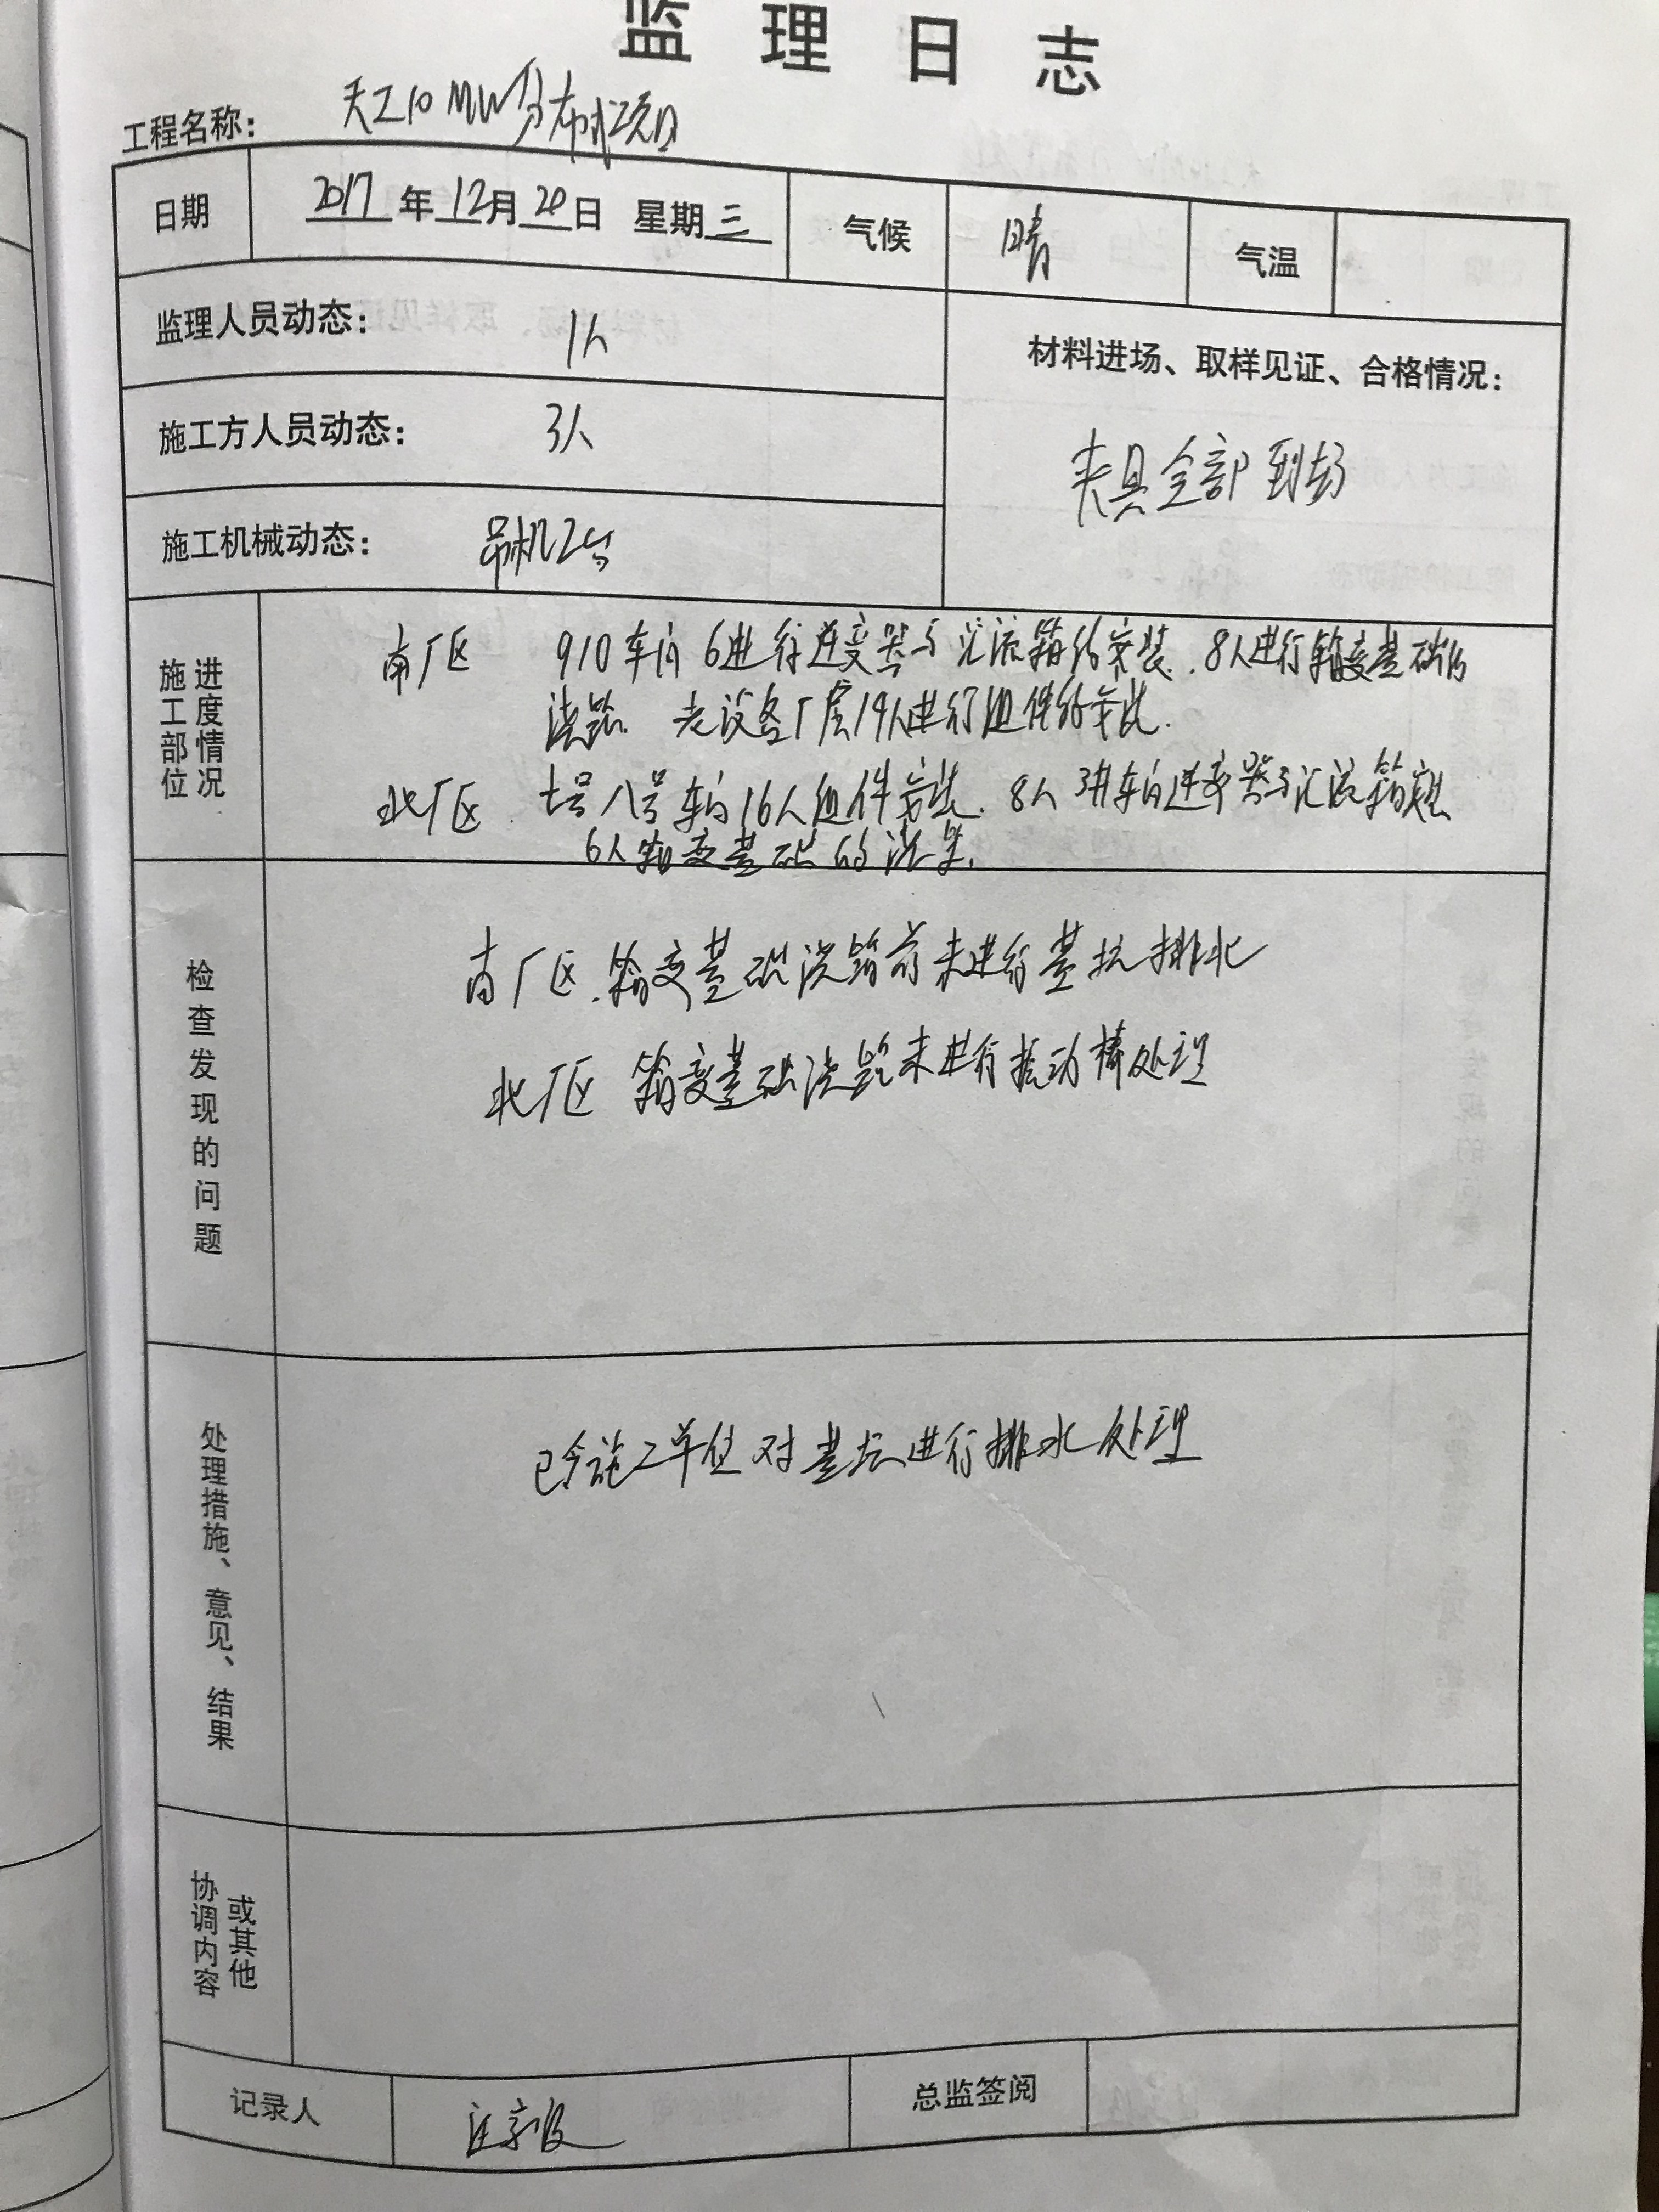 监理日志
工程名称： 天工10MW分布式项目
日期 2017年12月20日 星期三 气候 晴 气温
监理人员动态： 1人
材料进场、取样见证、合格情况：
施工方人员动态： 3人
夹具全部到场
施工机械动态： 吊机2台
施工部位 进度情况
南厂区 910车间6进行逆变器与汇流箱的安装.8人进行箱变基础的
浇筑. 老设备厂房19人进行组件的安装.
北厂区 七号八号车间16人组件安装.8人 车间逆变器与汇流箱安装
6人箱变基础的浇筑.
检查发现的问题
南厂区.箱变基础浇筑前未进行基坑排水
北厂区 箱变基础浇筑未进行振动棒处理
处理措施、意见、结果
已令施工单位对基坑进行排水处理
协调内容 或其他
记录人 汪 总监签阅